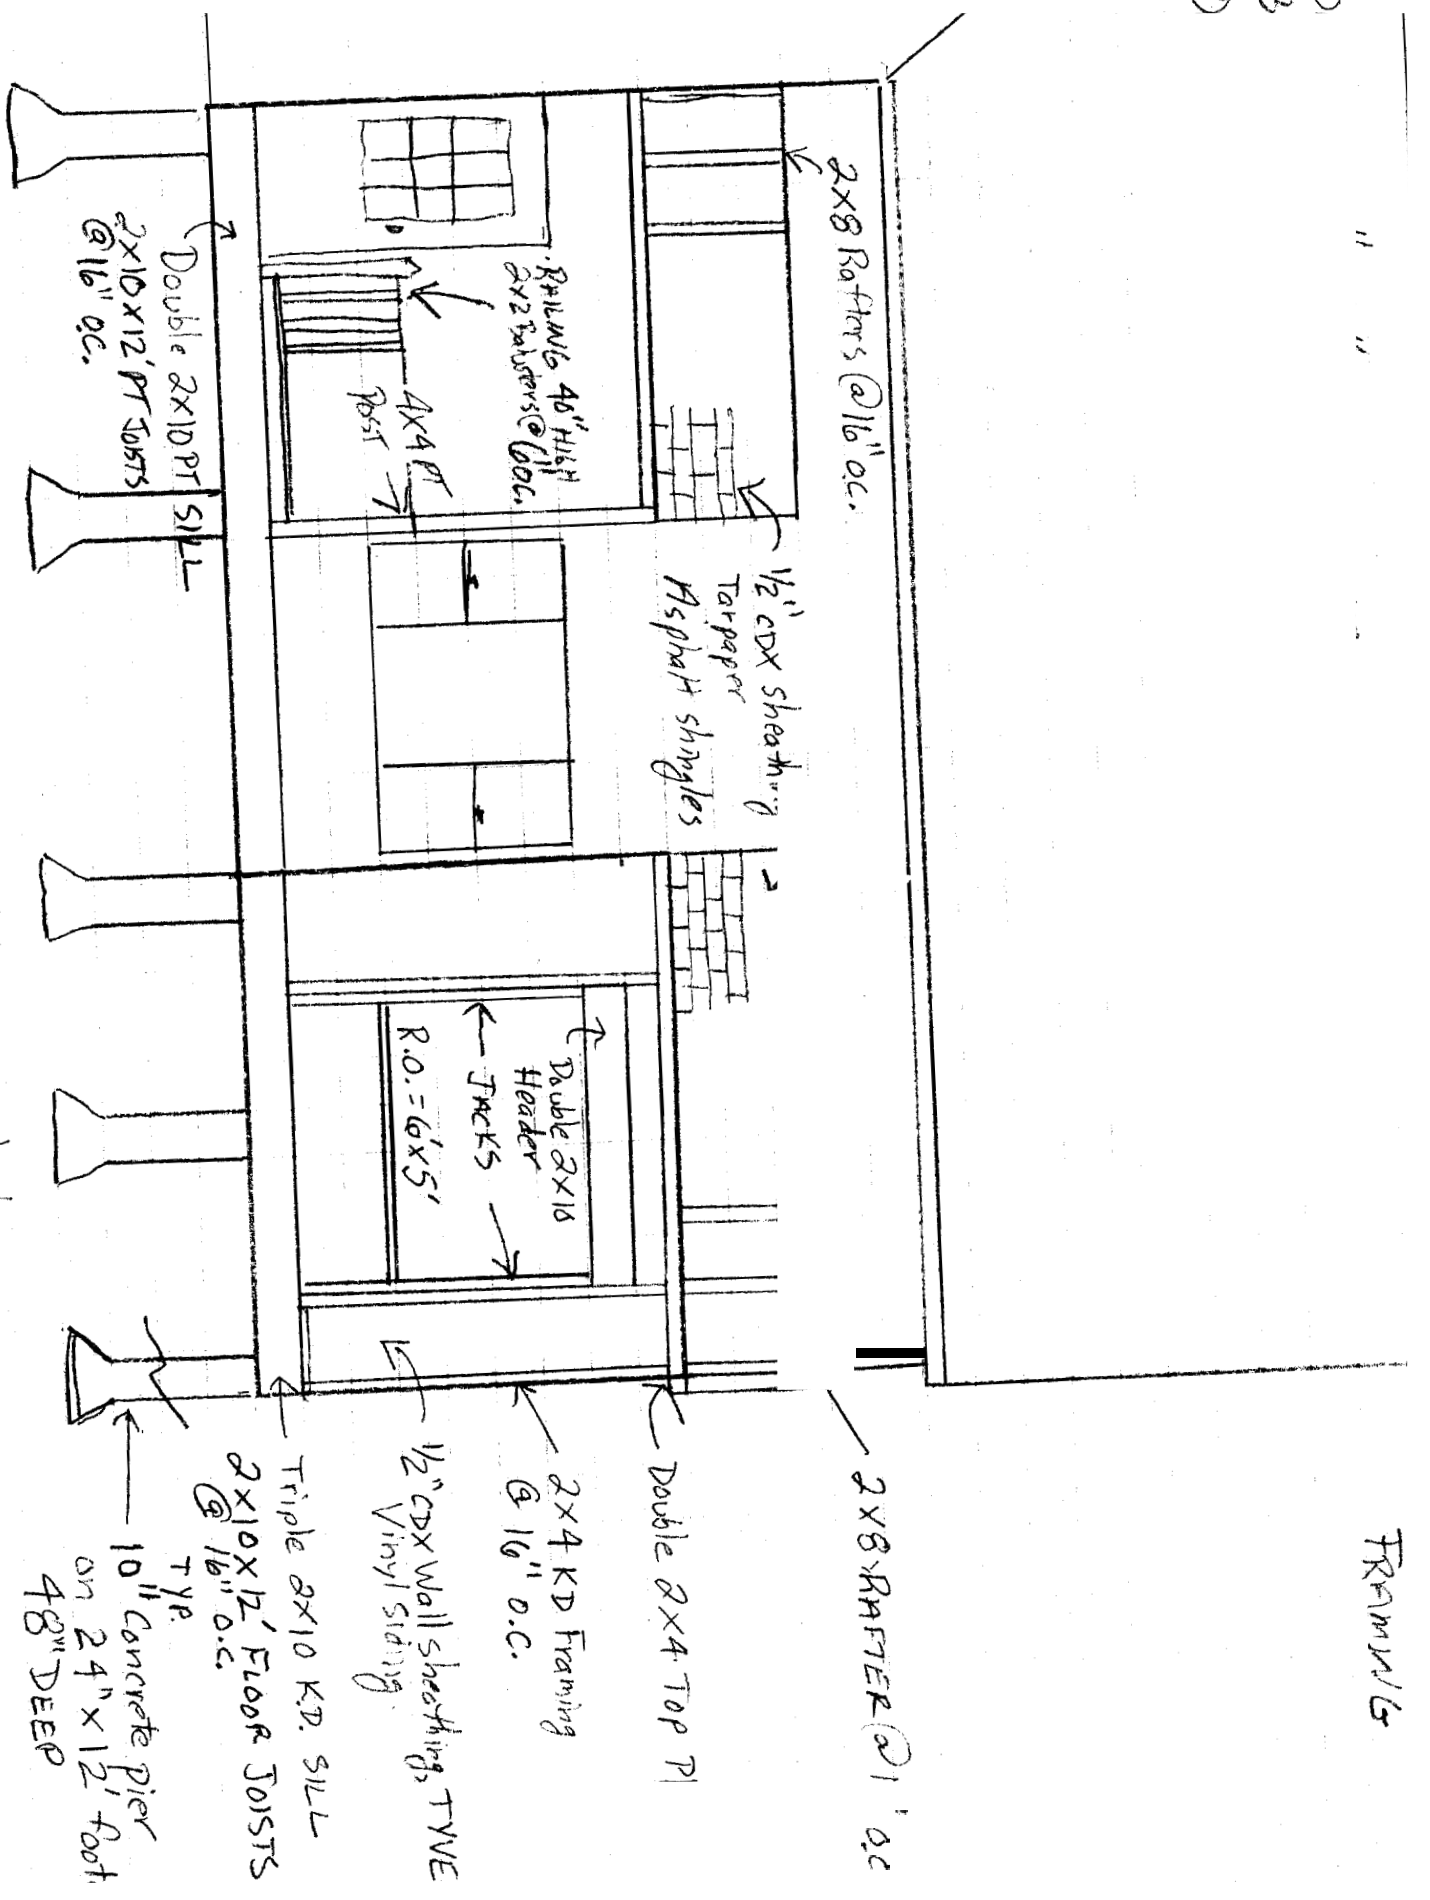 FRAMING
2x8 Rafters @ 16" o.c.
2x8 RAFTER @ 1 " o.c
1/2" CDX sheathing
Tarpaper
Asphalt shingles
RAILING 40" HIGH
2x2 Balusters @ 6" o.c.
4x4 PT
POST
Double 2x10
Header
JACKS
R.O. = 6'x5'
Double 2x10 PT SILL
2x10x12' PT JOISTS
@ 16" o.c.
Double 2x4 TOP Pl
2x4 KD Framing
@ 16" o.c.
1/2" CDX Wall sheathing, TYVE
Vinyl Siding.
Triple 2x10 K.D. SILL
2x10x12' FLOOR JOISTS
@ 16" o.c.
TYP.
10" Concrete pier
on 24" x 12' foot
48" DEEP